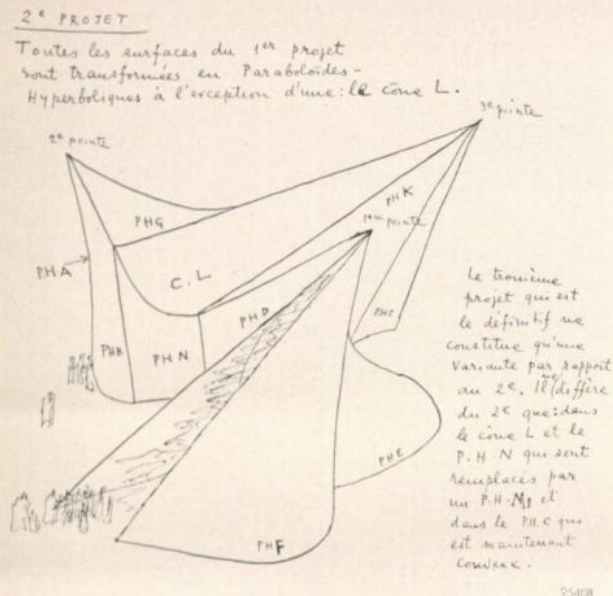 2e PROJET
Toutes les surfaces du 1er projet
sont transformées en Paraboloïdes-
Hyperboliques à l'exception d'une: le cône L.
3e pointe
2e pointe
PHK
PHG
pointe
PHA
C.L
PHD
PHC
PHB
PHN
PHE
PHF
Le troisième
projet qui est
le définitif ne
constitue qu'une
variante par rapport
au 2e. Il ne diffère
du 2e que: dans
le cône L et le
P.H.N qui sont
remplacés par
un P.H. et
dans le PH.C qui
est maintenant
convexe.